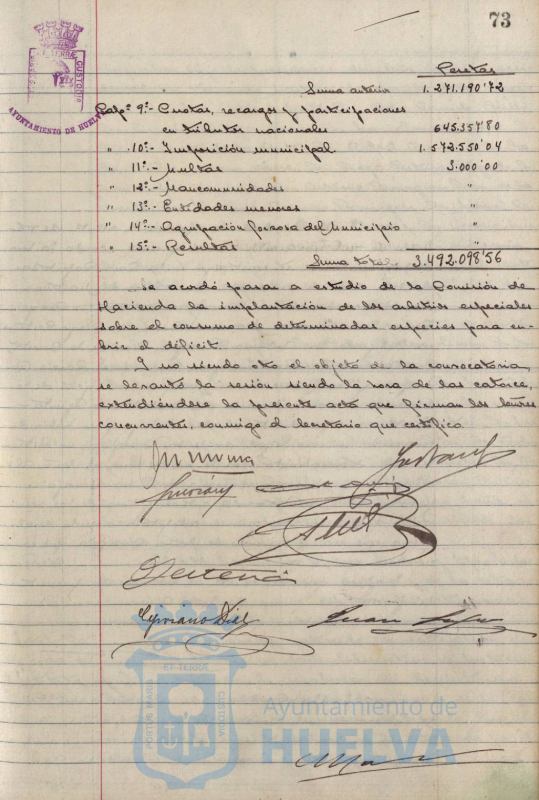 73
AYUNTAMIENTO DE HUELVA
Pesetas
Suma anterior 1.271.190'72
Capº 9º.- Cuotas, recargos y participaciones
en tributos nacionales 645.357'80
" 10º.- Imposición municipal. 1.572.550'04
" 11º.- Multas 3.000'00
" 12º.- Mancomunidades "
" 13º.- Entidades menores "
" 14º.- Agrupación forzosa del Municipio "
" 15º.- Resultas "
Suma total. 3.492.098'56
Se acordó pasar a estudio de la Comisión de
Hacienda la implantación de los arbitrios especiales
sobre el consumo de determinadas especies para cu-
brir el déficit.
Y no siendo otro el objeto de la convocatoria,
se levantó la sesión siendo la hora de las catorce,
extendiéndose la presente acta que firman los Señores
concurrentes, conmigo el Secretario que certifico.
Cipriano Díaz
Juan
ET TERRÆ
PORTUS MARIS
CUSTODIA
Ayuntamiento de
HUELVA